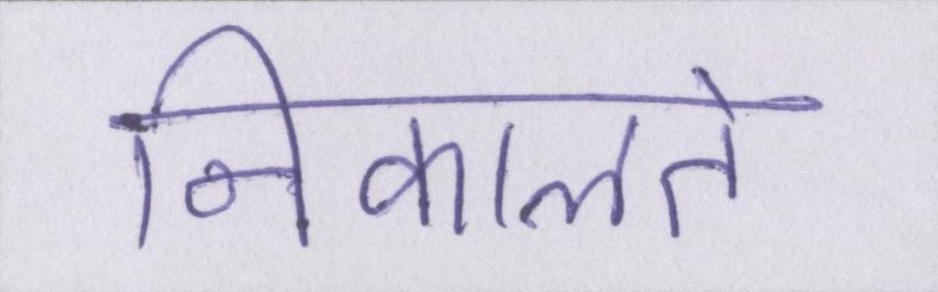 निकालते